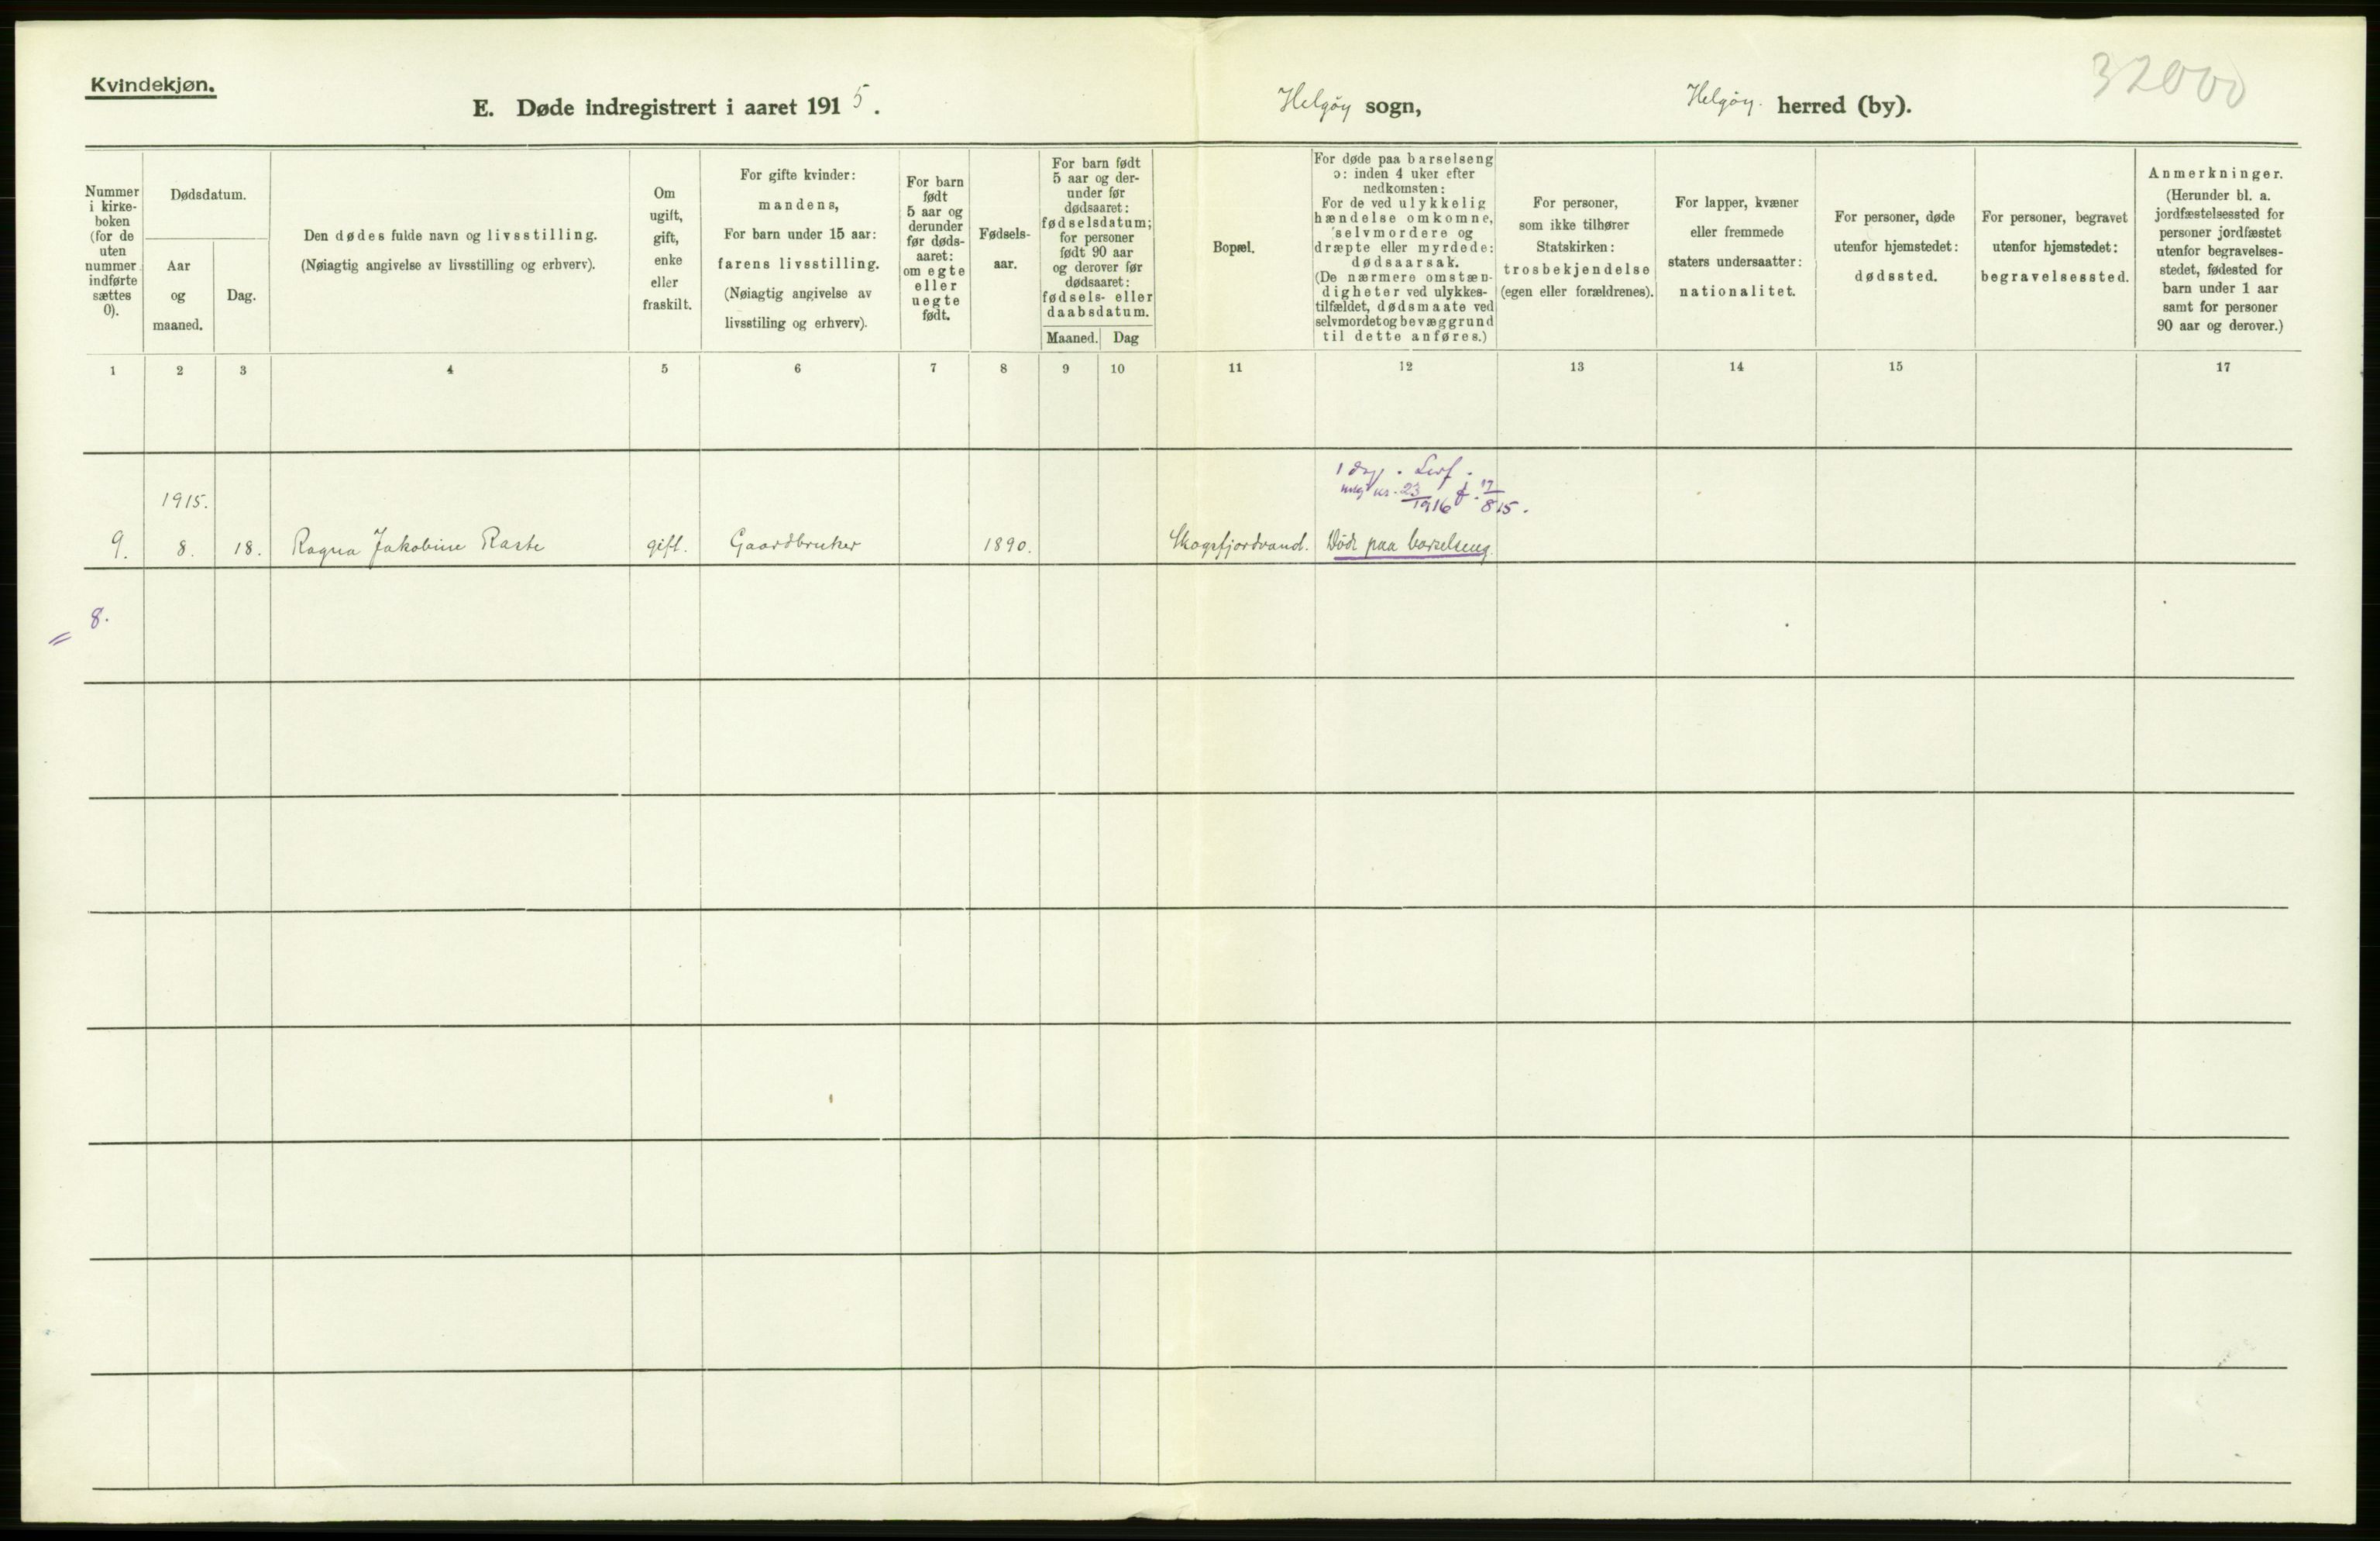 Kvindekjøn.
E. Døde indregistrert i aaret 1915.
Helgøy sogn,
Helgøy. herred (by).
32000
Nummer i kirke-
boken
(for de
uten
nummer
indførte
sættes
0).
Dødsdatum.
Aar
og
maaned.
Dag.
Den dødes fulde navn og livsstilling.
(Nøiagtig angivelse av livsstilling og erhverv).
Om
ugift,
gift,
enke
eller
fraskilt.
For gifte kvinder:
mandens,
For barn under 15 aar:
farens livsstilling.
(Nøiagtig angivelse av
livsstiling og erhverv).
For barn
født
5 aar og
derunder
før døds-
aaret:
om egte
eller
uegte
født.
Fødsels-
aar.
For barn født
5 aar og der-
under før
dødsaaret:
fødselsdatum;
for personer
født 90 aar
og derover før
dødsaaret:
fødsels- eller
daabsdatum.
Maaned. Dag
Bopæl.
For døde paa barselseng
ɔ: inden 4 uker efter
nedkomsten:
For de ved ulykkelig
hændelse omkomne,
selvmordere og
dræpte eller myrdede:
dødsaarsak.
(De nærmere omstæn-
digheter ved ulykkes-
tilfældet, dødsmaate ved
selvmordet og bevæggrund
til dette anføres.)
For personer,
som ikke tilhører
Statskirken:
trosbekjendelse
(egen eller forældrenes).
For lapper, kvæner
eller fremmede
staters undersaatter:
nationalitet.
For personer, døde
utenfor hjemstedet:
dødssted.
For personer, begravet
utenfor hjemstedet:
begravelsessted.
Anmerkninger.
(Herunder bl. a.
jordfæstelsessted for
personer jordfæstet
utenfor begravelses-
stedet, fødested for
barn under 1 aar
samt for personer
90 aar og derover.)
1 2 3 4 5 6 7 8 9 10 11 12 13 14 15 17
1 dag
nr. 23/1916 f. 17/8 15.
1915.
9. 8. 18. Ragna Jakobine Raste gift. Gaardbruker 1890. Skogsfjordvand. Død paa barselseng.
= 8.